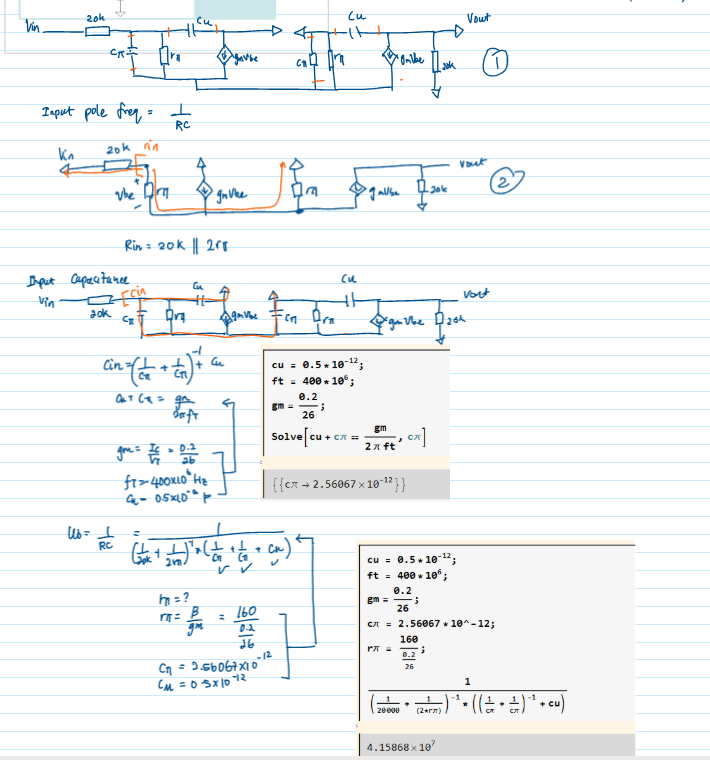 Vin 20k Cu Cu Vout
Cπ rπ gmVbe Cπ rπ gmVbe 20k ①
Input pole freq = 1/RC
Vin 20k rin Vout
Vbe + - rπ gmVbe rπ gmVbe 20k ②
Rin = 20k || 2rπ
Input Capacitance
Vin 20k Cin Cu Cu Vout
Cπ rπ gmVbe Cπ rπ gmVbe 20k
Cin = (1/Cπ + 1/Cπ)^-1 + Cu
Cu + Cπ = gm/2πfT
gm = Ic/VT = 0.2/26
fT = 400x10^6 Hz
Cu = 0.5x10^-12 F
cu = 0.5*10^-12;
ft = 400*10^6;
gm = 0.2/26;
Solve[cu + cπ == gm/(2 π ft), cπ]
{{cπ → 2.56067×10^-12}}
ω = 1/RC = 1/((1/20k + 1/2rπ)^-1 * (1/Cπ + 1/Cπ + Cu))
rπ = ?
rπ = β/gm = 160/(0.2/26)
Cπ = 2.56067x10^-12
Cu = 0.5x10^-12
cu = 0.5*10^-12;
ft = 400*10^6;
gm = 0.2/26;
cπ = 2.56067*10^-12;
rπ = 160/(0.2/26);
1/((1/20000 + 1/(2*rπ))^-1 * ((1/cπ + 1/cπ)^-1 + cu))
4.15868×10^7